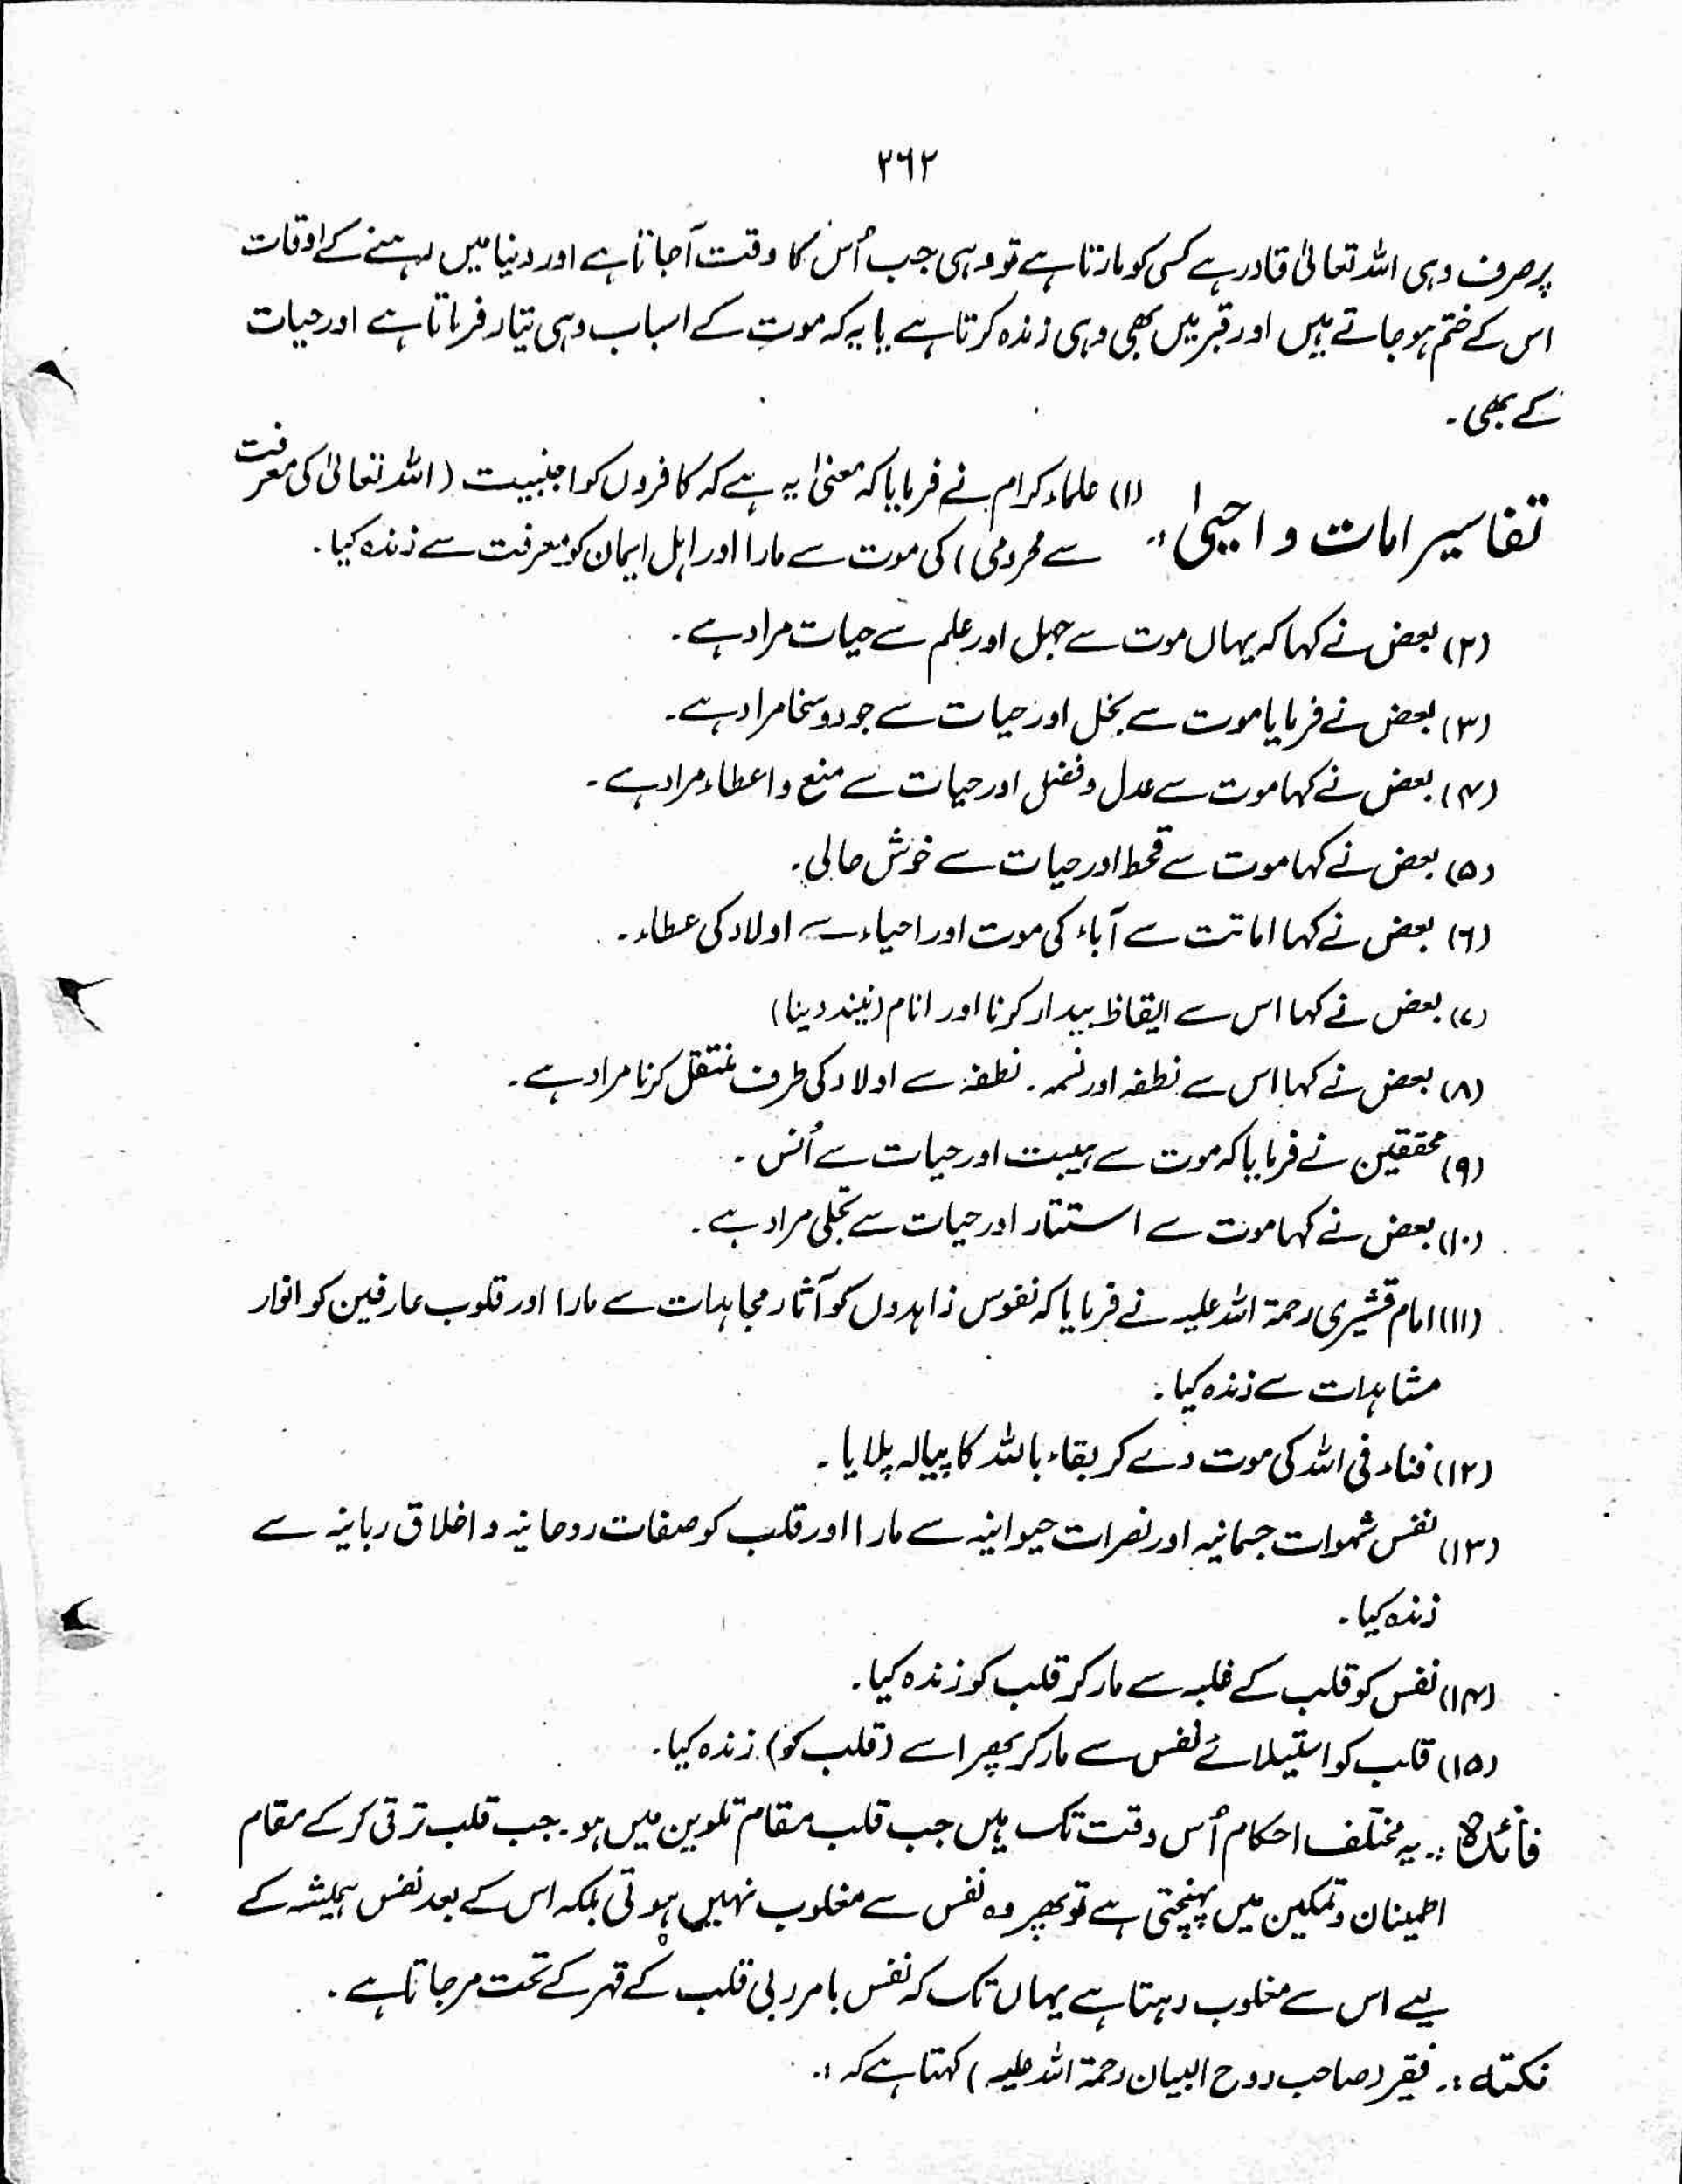 ۲۶۲
پر صرف وہی اللہ تعالیٰ قادر ہے کسی کو مارتا ہے تو وہی جب اُس کا وقت آجاتا ہے اور دنیا میں رہنے کے اوقات
اس کے ختم ہو جاتے ہیں اور قبر میں بھی وہی زندہ کرتا ہے یا یہ کہ موت کے اسباب وہی تیار فرماتا ہے اور حیات
کے بھی ۔
تفاسیر امات و احیٰی :۔ (۱) علماء کرام نے فرمایا کہ معنیٰ یہ ہے کہ کافروں کو اجنبیت (اللہ تعالیٰ کی معرفت
سے محرومی) کی موت سے مارا اور اہل ایمان کو معرفت سے زندہ کیا ۔
(۲) بعض نے کہا کہ یہاں موت سے جہل اور علم سے حیات مراد ہے ۔
(۳) بعض نے فرمایا موت سے بخل اور حیات سے جود و سخا مراد ہے ۔
(۴) بعض نے کہا موت سے عدل و فضل اور حیات سے منع و اعطاء مراد ہے ۔
(۵) بعض نے کہا موت سے قحط اور حیات سے خوش حالی ۔
(۶) بعض نے کہا اماتت سے آباء کی موت اور احیاء سے اولاد کی عطاء ۔
(۷) بعض نے کہا اس سے ایقاظ بیدار کرنا اور انام (نیند دینا)
(۸) بعض نے کہا اس سے نطفہ اور نسمہ ۔ نطفہ سے اولاد کی طرف منتقل کرنا مراد ہے ۔
(۹) محققین نے فرمایا کہ موت سے ہیبت اور حیات سے اُنس ۔
(۱۰) بعض نے کہا موت سے استتار اور حیات سے تجلی مراد ہے ۔
(۱۱) امام قشیری رحمۃ اللہ علیہ نے فرمایا کہ نفوس زاہدوں کو آثار مجاہدات سے مارا اور قلوب عارفین کو انوار
مشاہدات سے زندہ کیا ۔
(۱۲) فناء فی اللہ کی موت دے کر بقاء باللہ کا پیالہ پلایا ۔
(۱۳) نفس شہوات جسمانیہ اور نصرات حیوانیہ سے مارا اور قلب کو صفات روحانیہ و اخلاق ربانیہ سے
زندہ کیا ۔
(۱۴) نفس کو قلب کے غلبہ سے مار کر قلب کو زندہ کیا ۔
(۱۵) قلب کو استیلائے نفس سے مار کر پھر اسے (قلب کو) زندہ کیا ۔
فائدہ :۔ یہ مختلف احکام اُس وقت تک ہیں جب قلب مقام تلوین میں ہو ۔ جب قلب ترقی کر کے مقام
اطمینان و تمکین میں پہنچتی ہے تو پھر وہ نفس سے مغلوب نہیں ہوتی بلکہ اس کے بعد نفس ہمیشہ کے
لیے اس سے مغلوب رہتا ہے یہاں تک کہ نفس بامر ربی قلب کے قہر کے تحت مر جاتا ہے ۔
نکتہ :۔ فقیر (صاحب روح البیان رحمۃ اللہ علیہ) کہتا ہے کہ :۔